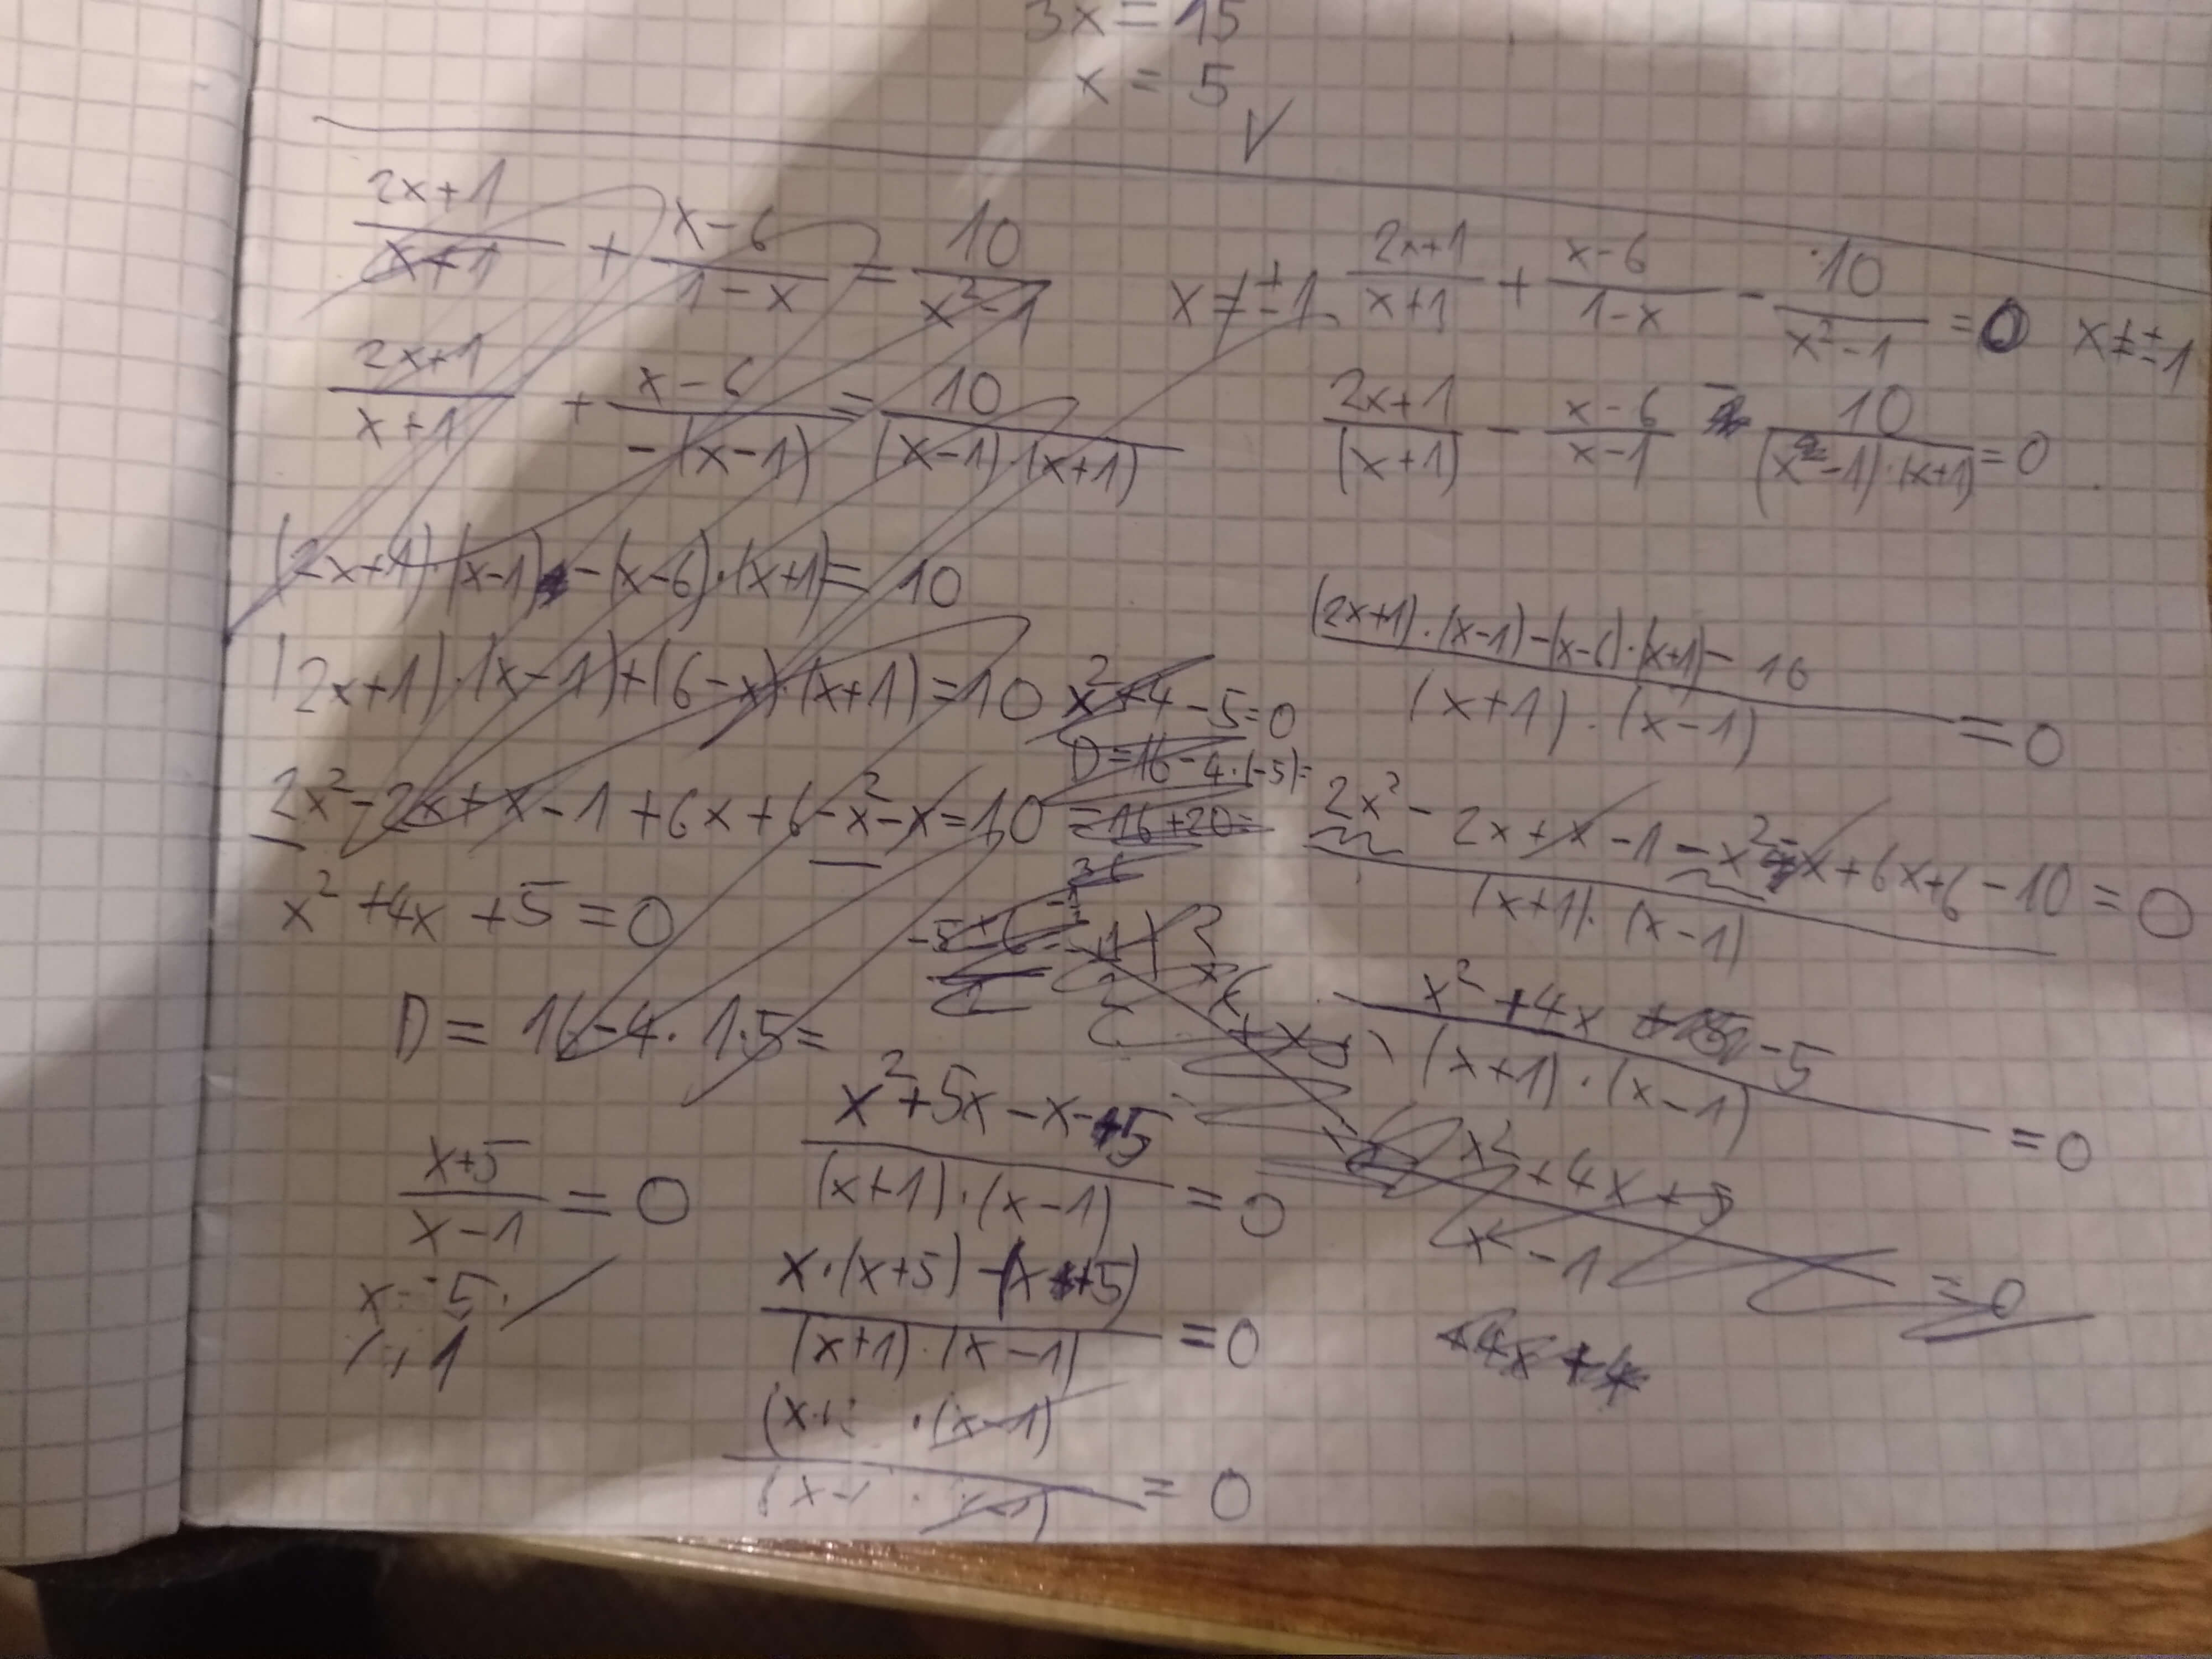 3x = 15
x = 5 √
2x+1/x+1 + x-6/1-x = 10/x²-1 x ≠ ±1
2x+1/x+1 + x-6/-(x-1) = 10/(x-1)·(x+1)
(2x+1)·(x-1) - (x-6)·(x+1) = 10
(2x+1)·(x-1)+(6-x)·(x+1) = 10
2x²-2x+x-1+6x+6-x²-x=10
x²+4x+5=0
D = 16-4·1·5=
x²+4-5=0
D=16-4·(-5)=
=16+20=
36
2x+1/x+1 + x-6/1-x - 10/x²-1 = 0 x ≠ ±1
2x+1/(x+1) - x-6/x-1 - 10/(x-1)·(x+1) = 0
(2x+1)·(x-1)-(x-6)·(x+1)-10/(x+1)·(x-1) = 0
2x²-2x+x-1-x²-x+6x+6-10/(x+1)·(x-1) = 0
x²+4x-5/(x+1)·(x-1) = 0
x²+4x+5/x²-1 = 0
x²+5x-x-5/(x+1)·(x-1) = 0
x·(x+5)-(x+5)/(x+1)·(x-1) = 0
·(x-1)/ = 0
x+5/x-1 = 0
x=-5